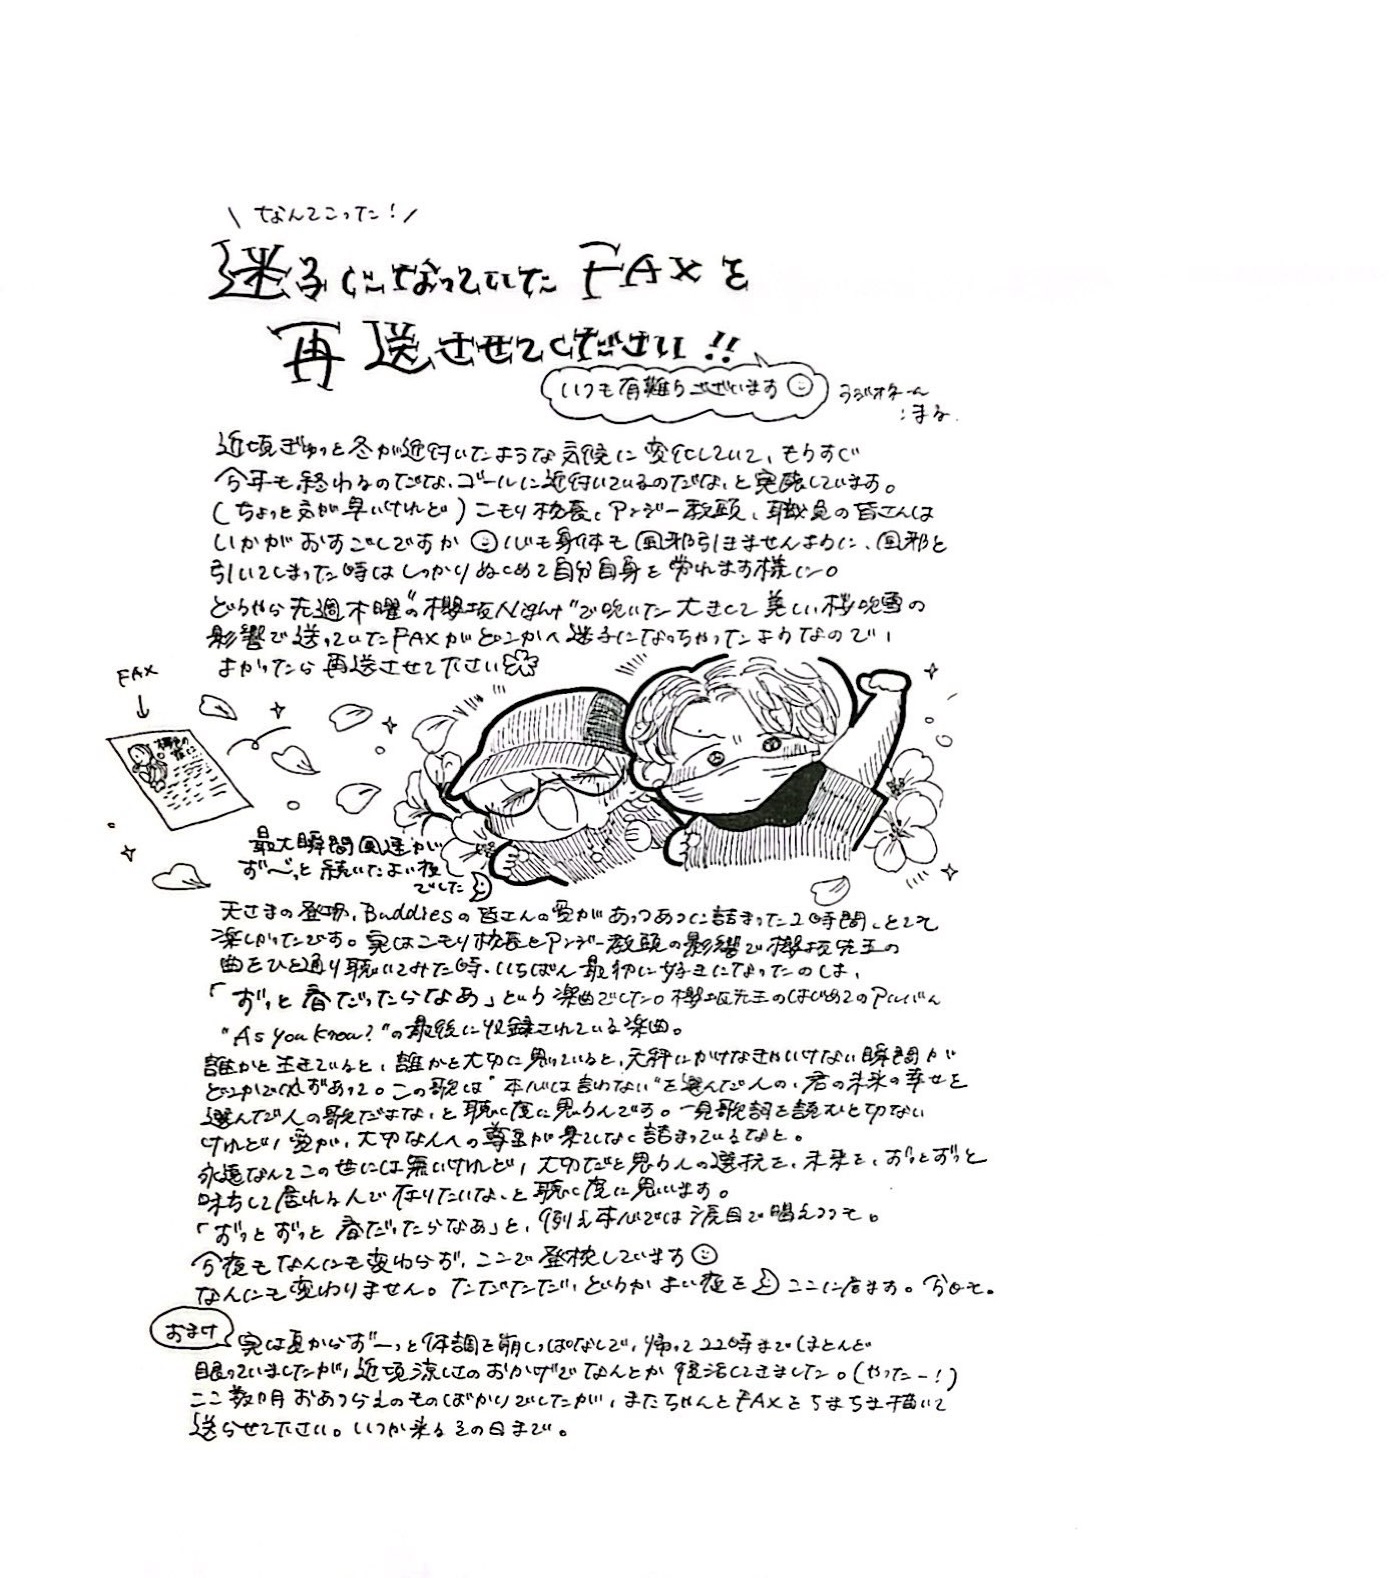 なんてこった!
迷子になっていたFAXを
再送させてください!!
いつも有難うございます
ラジオネーム
:まる.
近頃ぎゅっと冬が近付いたような気候に変化していて、もうすぐ
今年も終わるのだな、ゴールに近付いているのだな、と実感しています。
(ちょっと気が早いけれど)こもり校長、アンジー教頭、職員の皆さんは
いかがおすごしですか 心も身体も風邪引きませんように、風邪を
引いてしまった時はしっかりぬくめて自分自身を労れます様に。
どうやら先週木曜の"櫻坂Night"で吹いた大きくて美しい桜吹雪の
影響で送っていたFAXがどこかへ迷子になっちゃったようなので、
よかったら再送させて下さい
FAX
最大瞬間風速が
ず〜っと続いたよい夜
でした
天さまの登場、Buddiesの皆さんの愛があつあつに詰まった2時間、とても
楽しかったです。実はこもり校長とアンジー教頭の影響で櫻坂先生の
曲をひと通り聴いてみた時、いちばん最初に好きになったのは、
「ずっと春だったらなあ」という楽曲でした。櫻坂先生のはじめてのアルバム
"As you know?"の最後に収録されている楽曲。
誰かと生きていると、誰かを大切に思っていると、天秤にかけなきゃいけない瞬間が
どこかで必ずあって。この歌は"本心は言わない"を選んだ人の、君の未来の幸せを
選んだ人の歌だよな、と聴く度に思うんです。一見歌詞を読むと切ない
けれど、愛が、大切な人への尊重が果てしなく詰まっているなと。
永遠なんてこの世には無いけれど、大切だと思う人の選択を、未来を、ずっとずっと
味方して居れる人で在りたいな、と聴く度に思います。
「ずっとずっと春だったらなあ」と、例え本心では涙目で唱えつつも。
今夜もなんにも変わらず、ここで登校しています
なんにも変わりません。ただただ、どうかよい夜を ここに居ます。今日も。
おまけ
実は夏からずーっと体調を崩しっぱなしで、帰って22時までほとんど
眠っていましたが、近頃涼しさのおかげでなんとか復活してきました。(やったー!)
ここ数ヶ月おあつらえのものばかりでしたが、またちゃんとFAXをちまちま描いて
送らせて下さい。いつか来るその日まで。